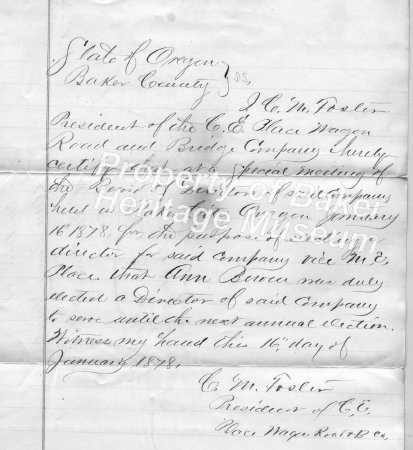 State of Oregon
Baker County } ss.
I C. M. Foster
President of the C. E. Place Wagon
Road and Bridge Company hereby
certify that at a special meeting of
the Board of Directors of said Company
held at Baker City Oregon January
16" 1878. for the purpose of
director for said Company vice M. E.
Place, that Ann Bowen was duly
elected a Director of said Company
to serve until the next annual election.
Witness my hand this 16" day of
January 1878.
C. M. Foster
President of C. E.
Place Wagon Road & B Co.
Property of Baker
Heritage Museum